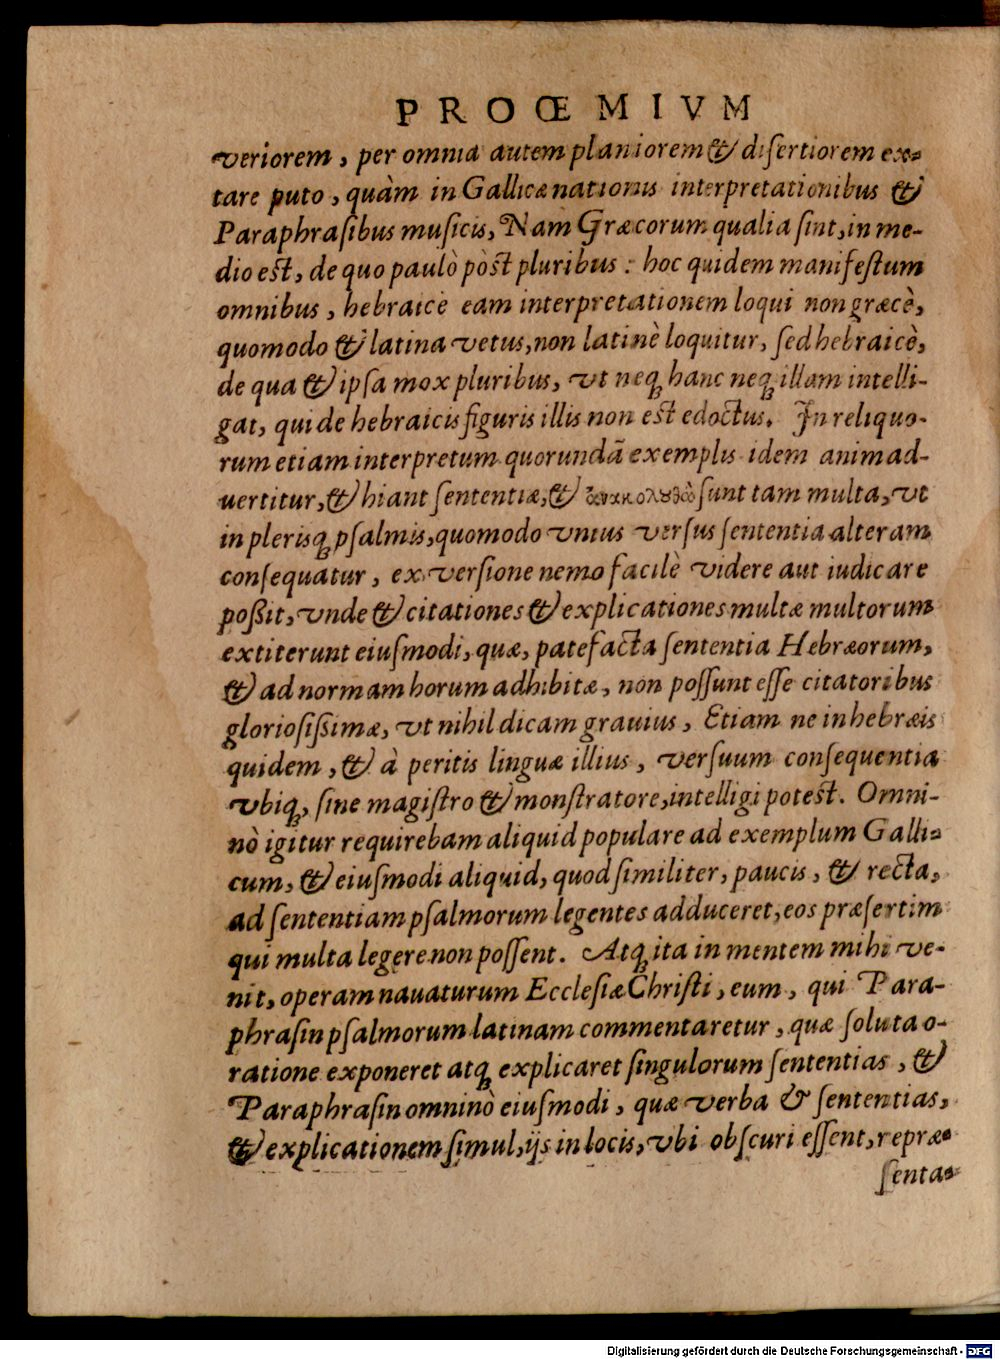 PROŒMIVM
veriorem, per omnia autem planiorem & disertiorem ex-
tare puto, quàm in Gallicæ nationis interpretationibus &
Paraphrasibus musicis, Nam Græcorum qualia sint, in me-
dio est, de quo paulò pòst pluribus: hoc quidem manifestum
omnibus, hebraicè eam interpretationem loqui non græcè,
quomodo & latina vetus, non latinè loquitur, sed hebraicè,
de qua & ipsa mox pluribus, vt neq; hanc neq; illam intelli-
gat, qui de hebraicis figuris illis non est edoctus. In reliquo-
rum etiam interpretum quorundã exemplis idem animad-
uertitur, & hiant sententiæ, & sunt tam multa, vt
in plerisq; psalmis, quomodo vnius versus sententia alteram
consequatur, ex versione nemo facilè videre aut iudicare
poßit, vnde & citationes & explicationes multæ multorum
extiterunt eiusmodi, quæ, patefacta sententia Hebræorum,
& ad normam horum adhibitæ, non possunt esse citatoribus
gloriosißimæ, vt nihil dicam grauius, Etiam ne in hebræis
quidem, & à peritis linguæ illius, versuum consequentia
vbiq;, sine magistro & monstratore, intelligi potest. Omni-
nò igitur requirebam aliquid populare ad exemplum Galli-
cum, & eiusmodi aliquid, quod similiter, paucis, & recta,
ad sententiam psalmorum legentes adduceret, eos præsertim
qui multa legere non possent. Atq; ita in mentem mihi ve-
nit, operam nauaturum Ecclesiæ Christi, eum, qui Para-
phrasin psalmorum latinam commentaretur, quæ soluta o-
ratione exponeret atq; explicaret singulorum sententias, &
Paraphrasin omninò eiusmodi, quæ verba & sententias,
& explicationem simul, ijs in locis, vbi obscuri essent, repræ-
senta-
Digitalisierung gefördert durch die Deutsche Forschungsgemeinschaft - DFG